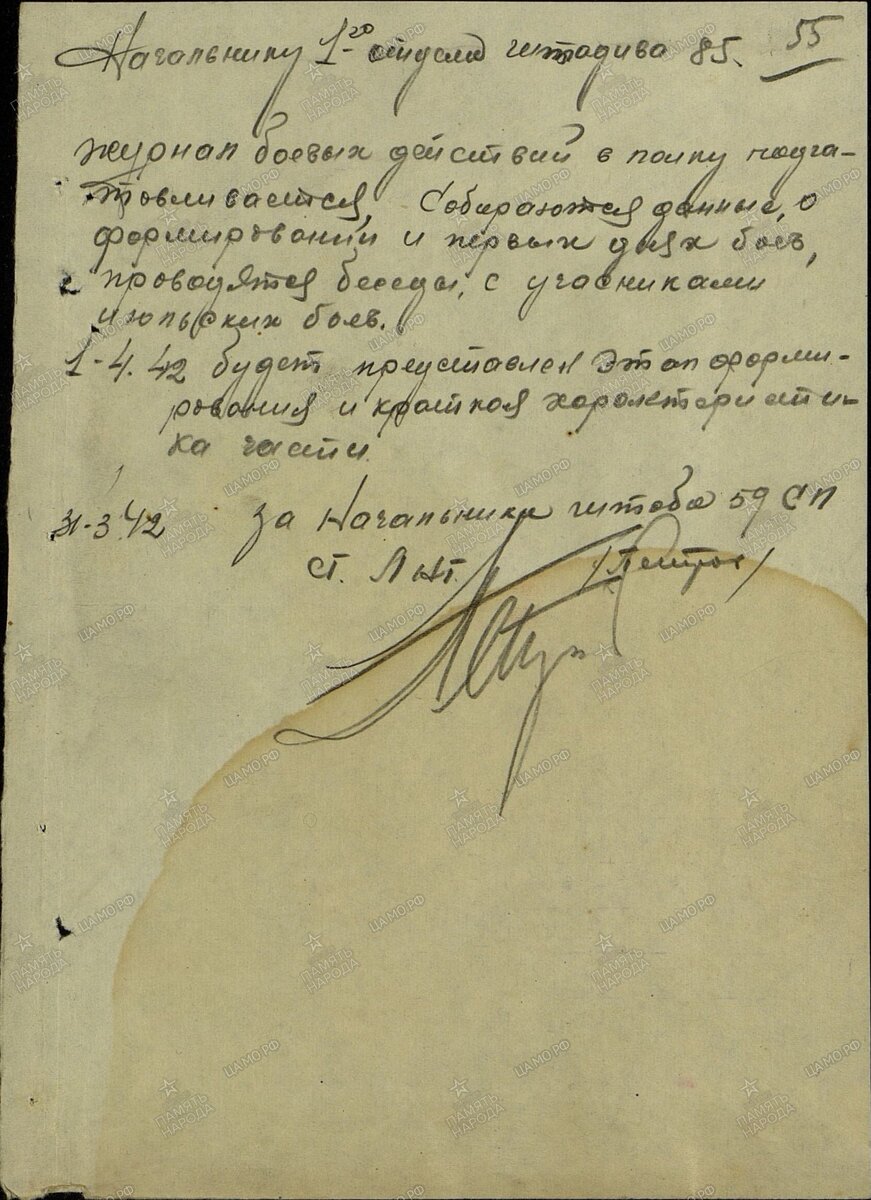 55
Начальнику 1-го отдела штадива 85.
Журнал боевых действий в полку подга-
товливается, Собираются данные, о
формировании и первых днях боев,
проводятся беседы, с учасниками
июльских боев.
1-4.42 будет представлен этап форми-
рования и краткая характеристи-
ка части.
31-3.42 За Начальника штаба 59 СП
ст. Л-нт.